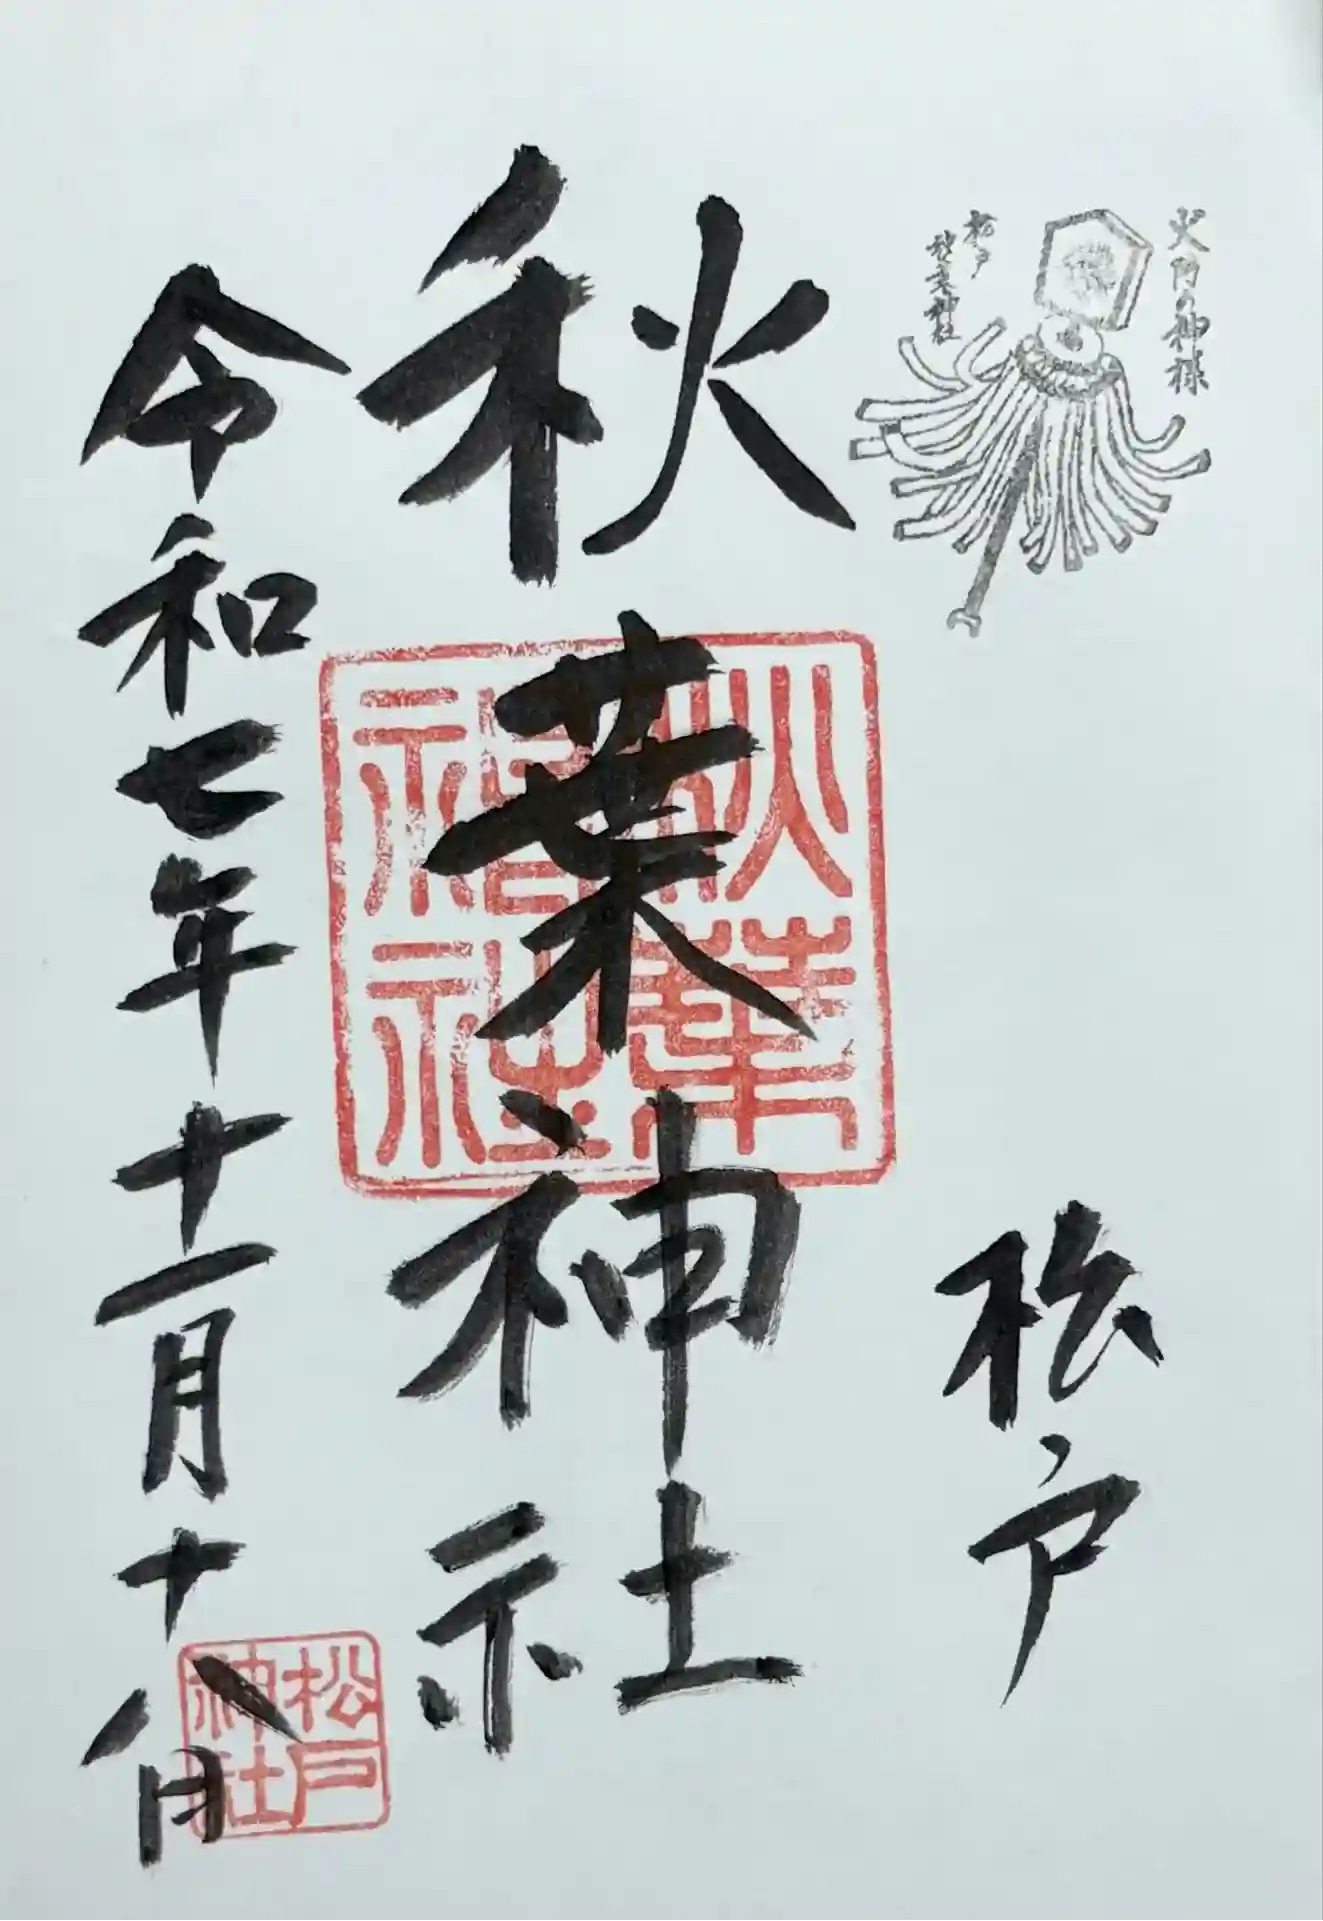 火防の神様
松戸
秋葉神社
松戸
秋葉神社
秋葉
神社
令和七年十一月十八日
松戸
神社